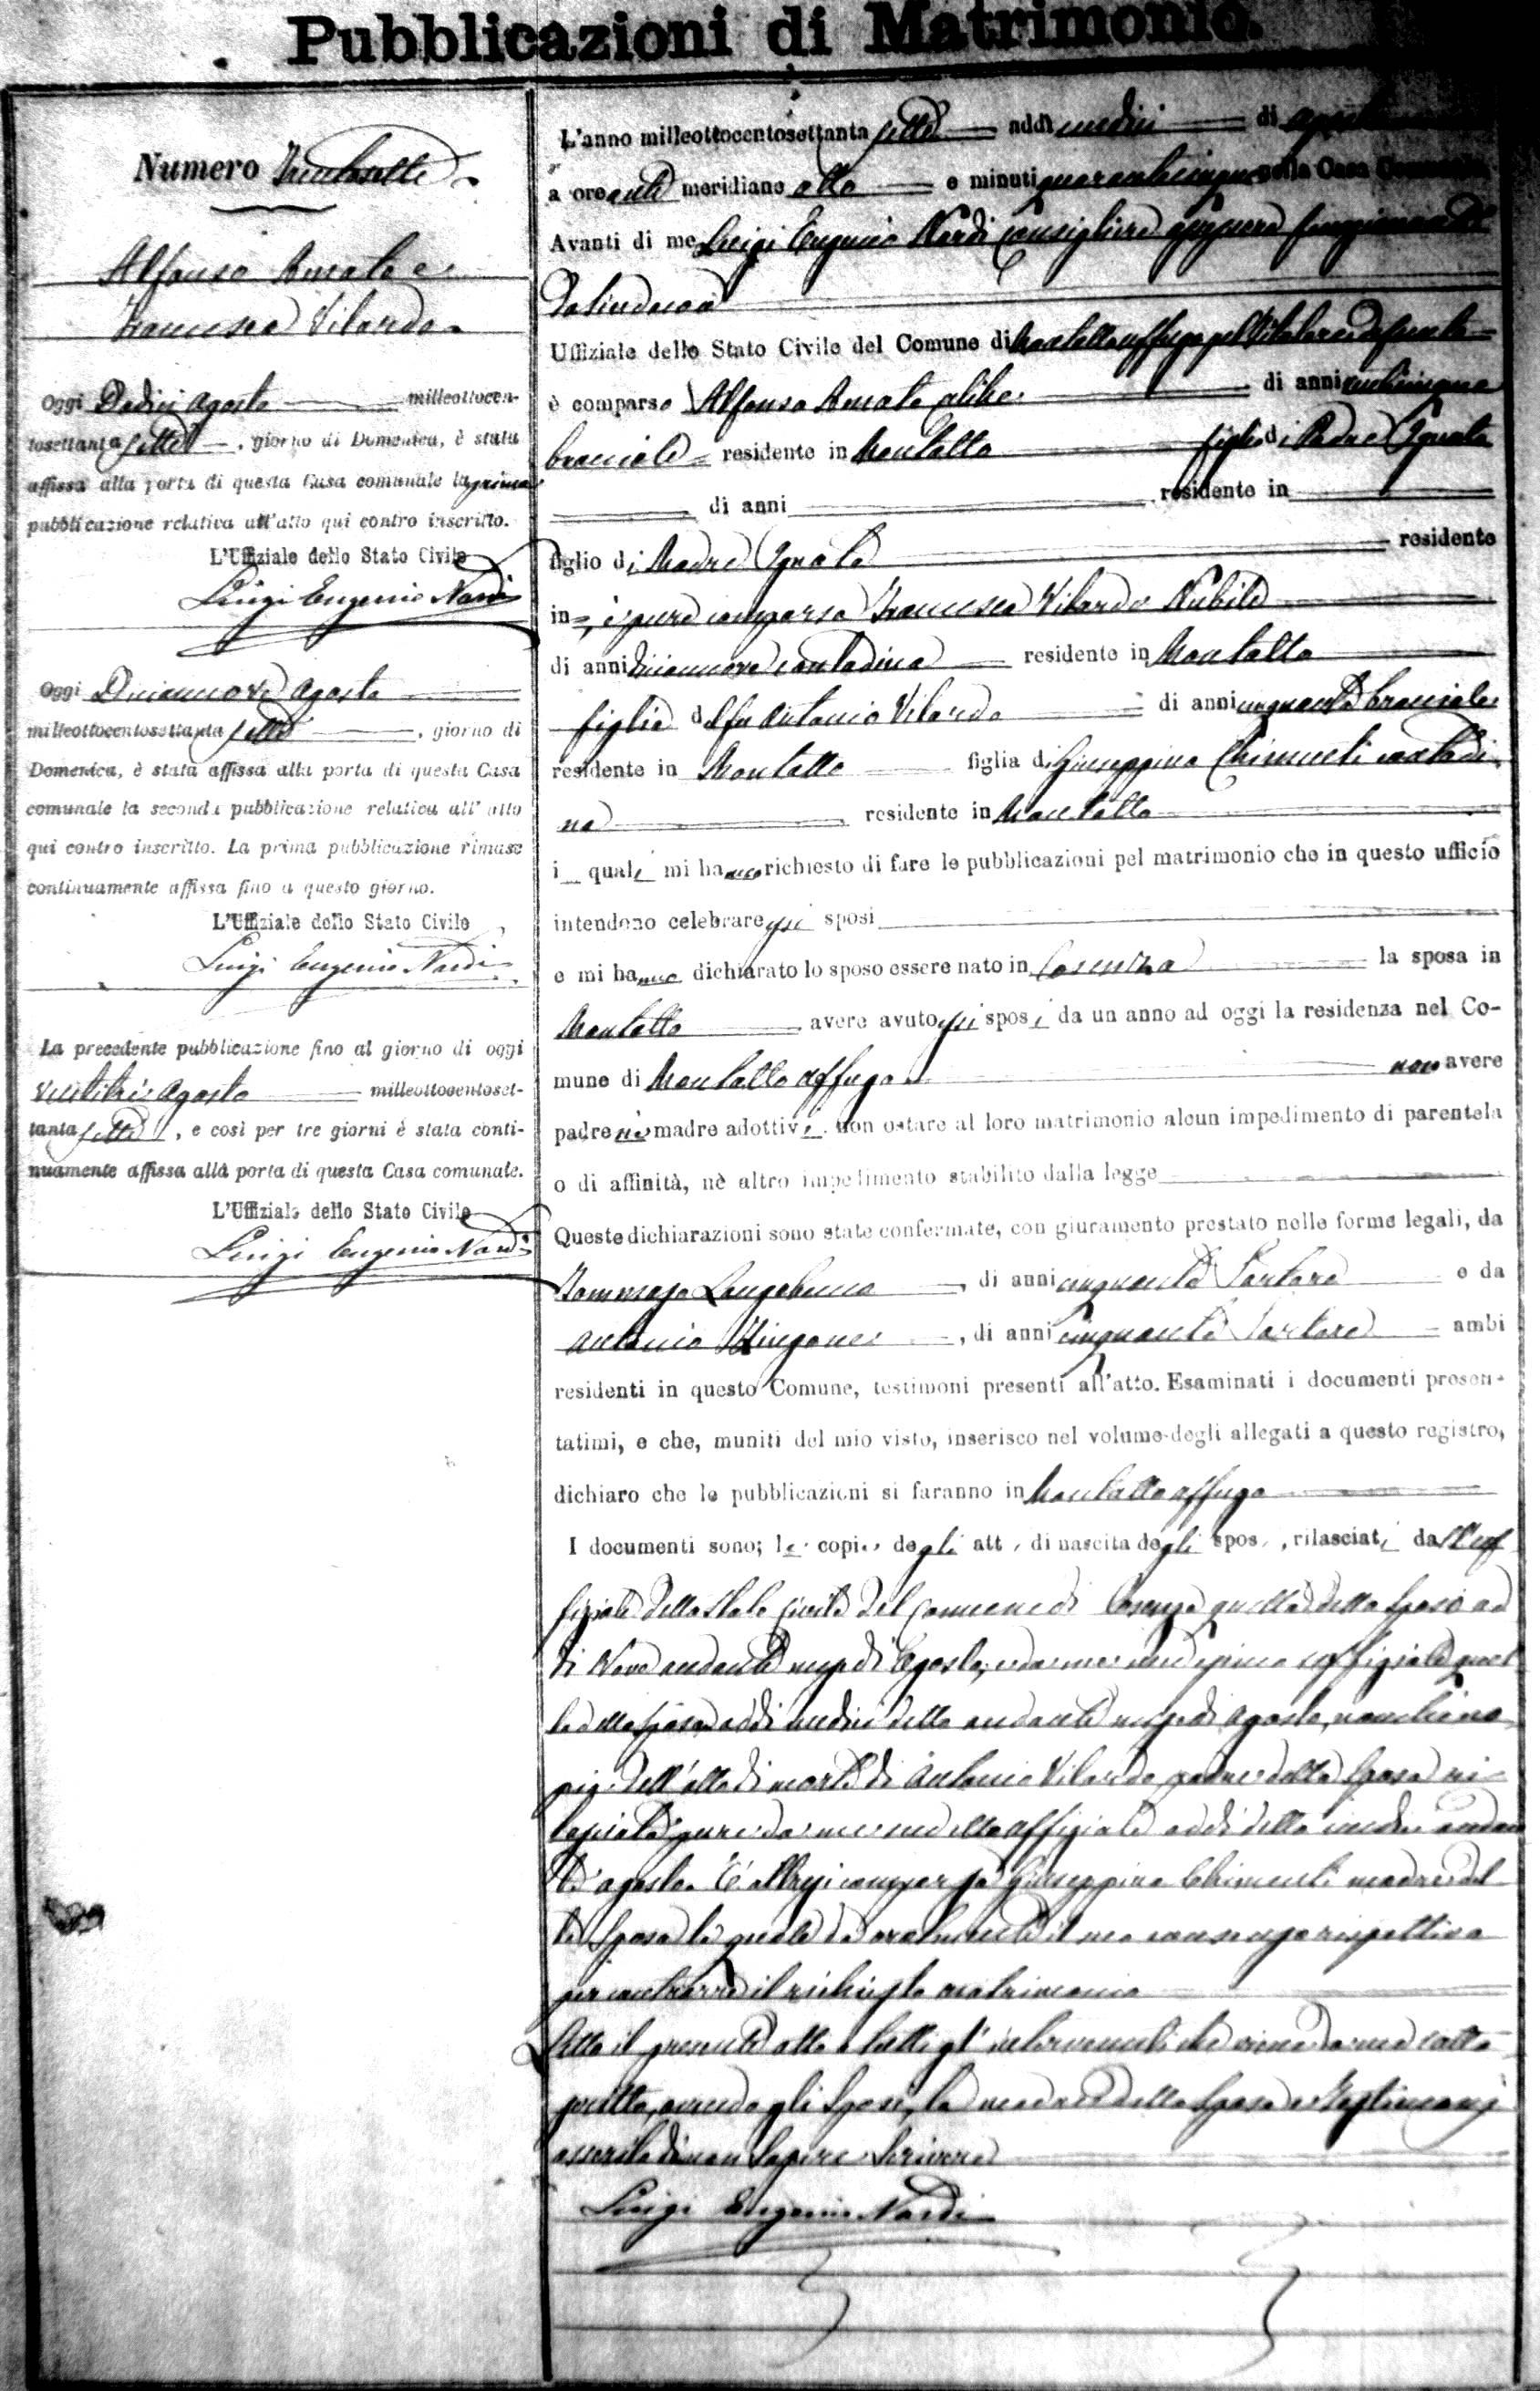 Pubblicazioni di Matrimonio.
Numero Trentasette
Alfonso Amato e
Francesca Vilardo
Oggi Dodici Agosto milleottocen-
tosettanta sette, giorno di Domenica, è stata
affissa alla porta di questa Casa comunale la prima
pubblicazione relativa all'atto qui contro inscritto.
L'Uffiziale dello Stato Civile
Luigi Eugenio Nardi
Oggi Diciannove Agosto
milleottocentosettanta sette, giorno di
Domenica, è stata affissa alla porta di questa Casa
comunale la seconda pubblicazione relativa all'atto
qui contro inscritto. La prima pubblicazione rimase
continuamente affissa fino a questo giorno.
L'Uffiziale dello Stato Civile
Luigi Eugenio Nardi
La precedente pubblicazione fino al giorno di oggi
Ventitrè Agosto milleottocentoset-
tanta sette, e così per tre giorni è stata conti-
nuamente affissa alla porta di questa Casa comunale.
L'Uffiziale dello Stato Civile
Luigi Eugenio Nardi
L'anno milleottocentosettanta sette addì undici di Agosto
a ore anti meridiane otto e minuti quarantacinque nella Casa Comunale
Avanti di me Luigi Eugenio Nardi Consigliere funzionante
da Sindaco
Uffiziale dello Stato Civile del Comune di Montalto Uffugo pel Titolare
è comparso Alfonso Amato celibe di anni venticinque
bracciale residente in Montalto figlio di Padre Ignoto
di anni residente in
figlio di Madre Ignota residente
in, è pure comparsa Francesca Vilardo Nubile
di anni diciannove contadina residente in Montalto
figlia del fu Antonio Vilardo di anni cinquanta bracciale
residente in Montalto figlia di Giuseppina Chimenti contadi-
na residente in Montalto
i quali mi hanno richiesto di fare le pubblicazioni pel matrimonio che in questo ufficio
intendono celebrare essi sposi
e mi hanno dichiarato lo sposo essere nato in Cosenza la sposa in
Montalto avere avuto essi sposi da un anno ad oggi la residenza nel Co-
mune di Montalto Uffugo non avere
padre nè madre adottivi non ostare al loro matrimonio alcun impedimento di parentela
o di affinità, nè altro impedimento stabilito dalla legge
Queste dichiarazioni sono state confermate, con giuramento prestato nelle forme legali, da
Tommaso Longobucco, di anni cinquanta Sartore e da
Antonio, di anni cinquanta Sartore ambi
residenti in questo Comune, testimoni presenti all'atto. Esaminati i documenti presen-
tatimi, e che, muniti del mio visto, inserisco nel volume degli allegati a questo registro,
dichiaro che le pubblicazioni si faranno in Montalto Uffugo
I documenti sono; le copie degli atti di nascita degli sposi, rilasciati dall'Uf
fiziale dello Stato Civile del Comune di Cosenza quella dello Sposo ad
di Nove andante mese di Agosto, e da me uffiziale quel
la della Sposa addì undici dello andante mese di Agosto, nonchè co
pia dell'atto di morte di Antonio Vilardo padre della Sposa ri-
lasciata pure da me uffiziale addì detto undici andan
te agosto. È altresì comparsa Giuseppina Chimenti madre del-
la Sposa la quale dà oralmente il suo consenso rispettivo
per contrarre il richiesto matrimonio
Letto il presente atto a tutti gl'intervenuti che viene da me sotto-
scritto, avendo gli Sposi, la madre della Sposa e testimoni
asserito di non sapere scrivere
Luigi Eugenio Nardi